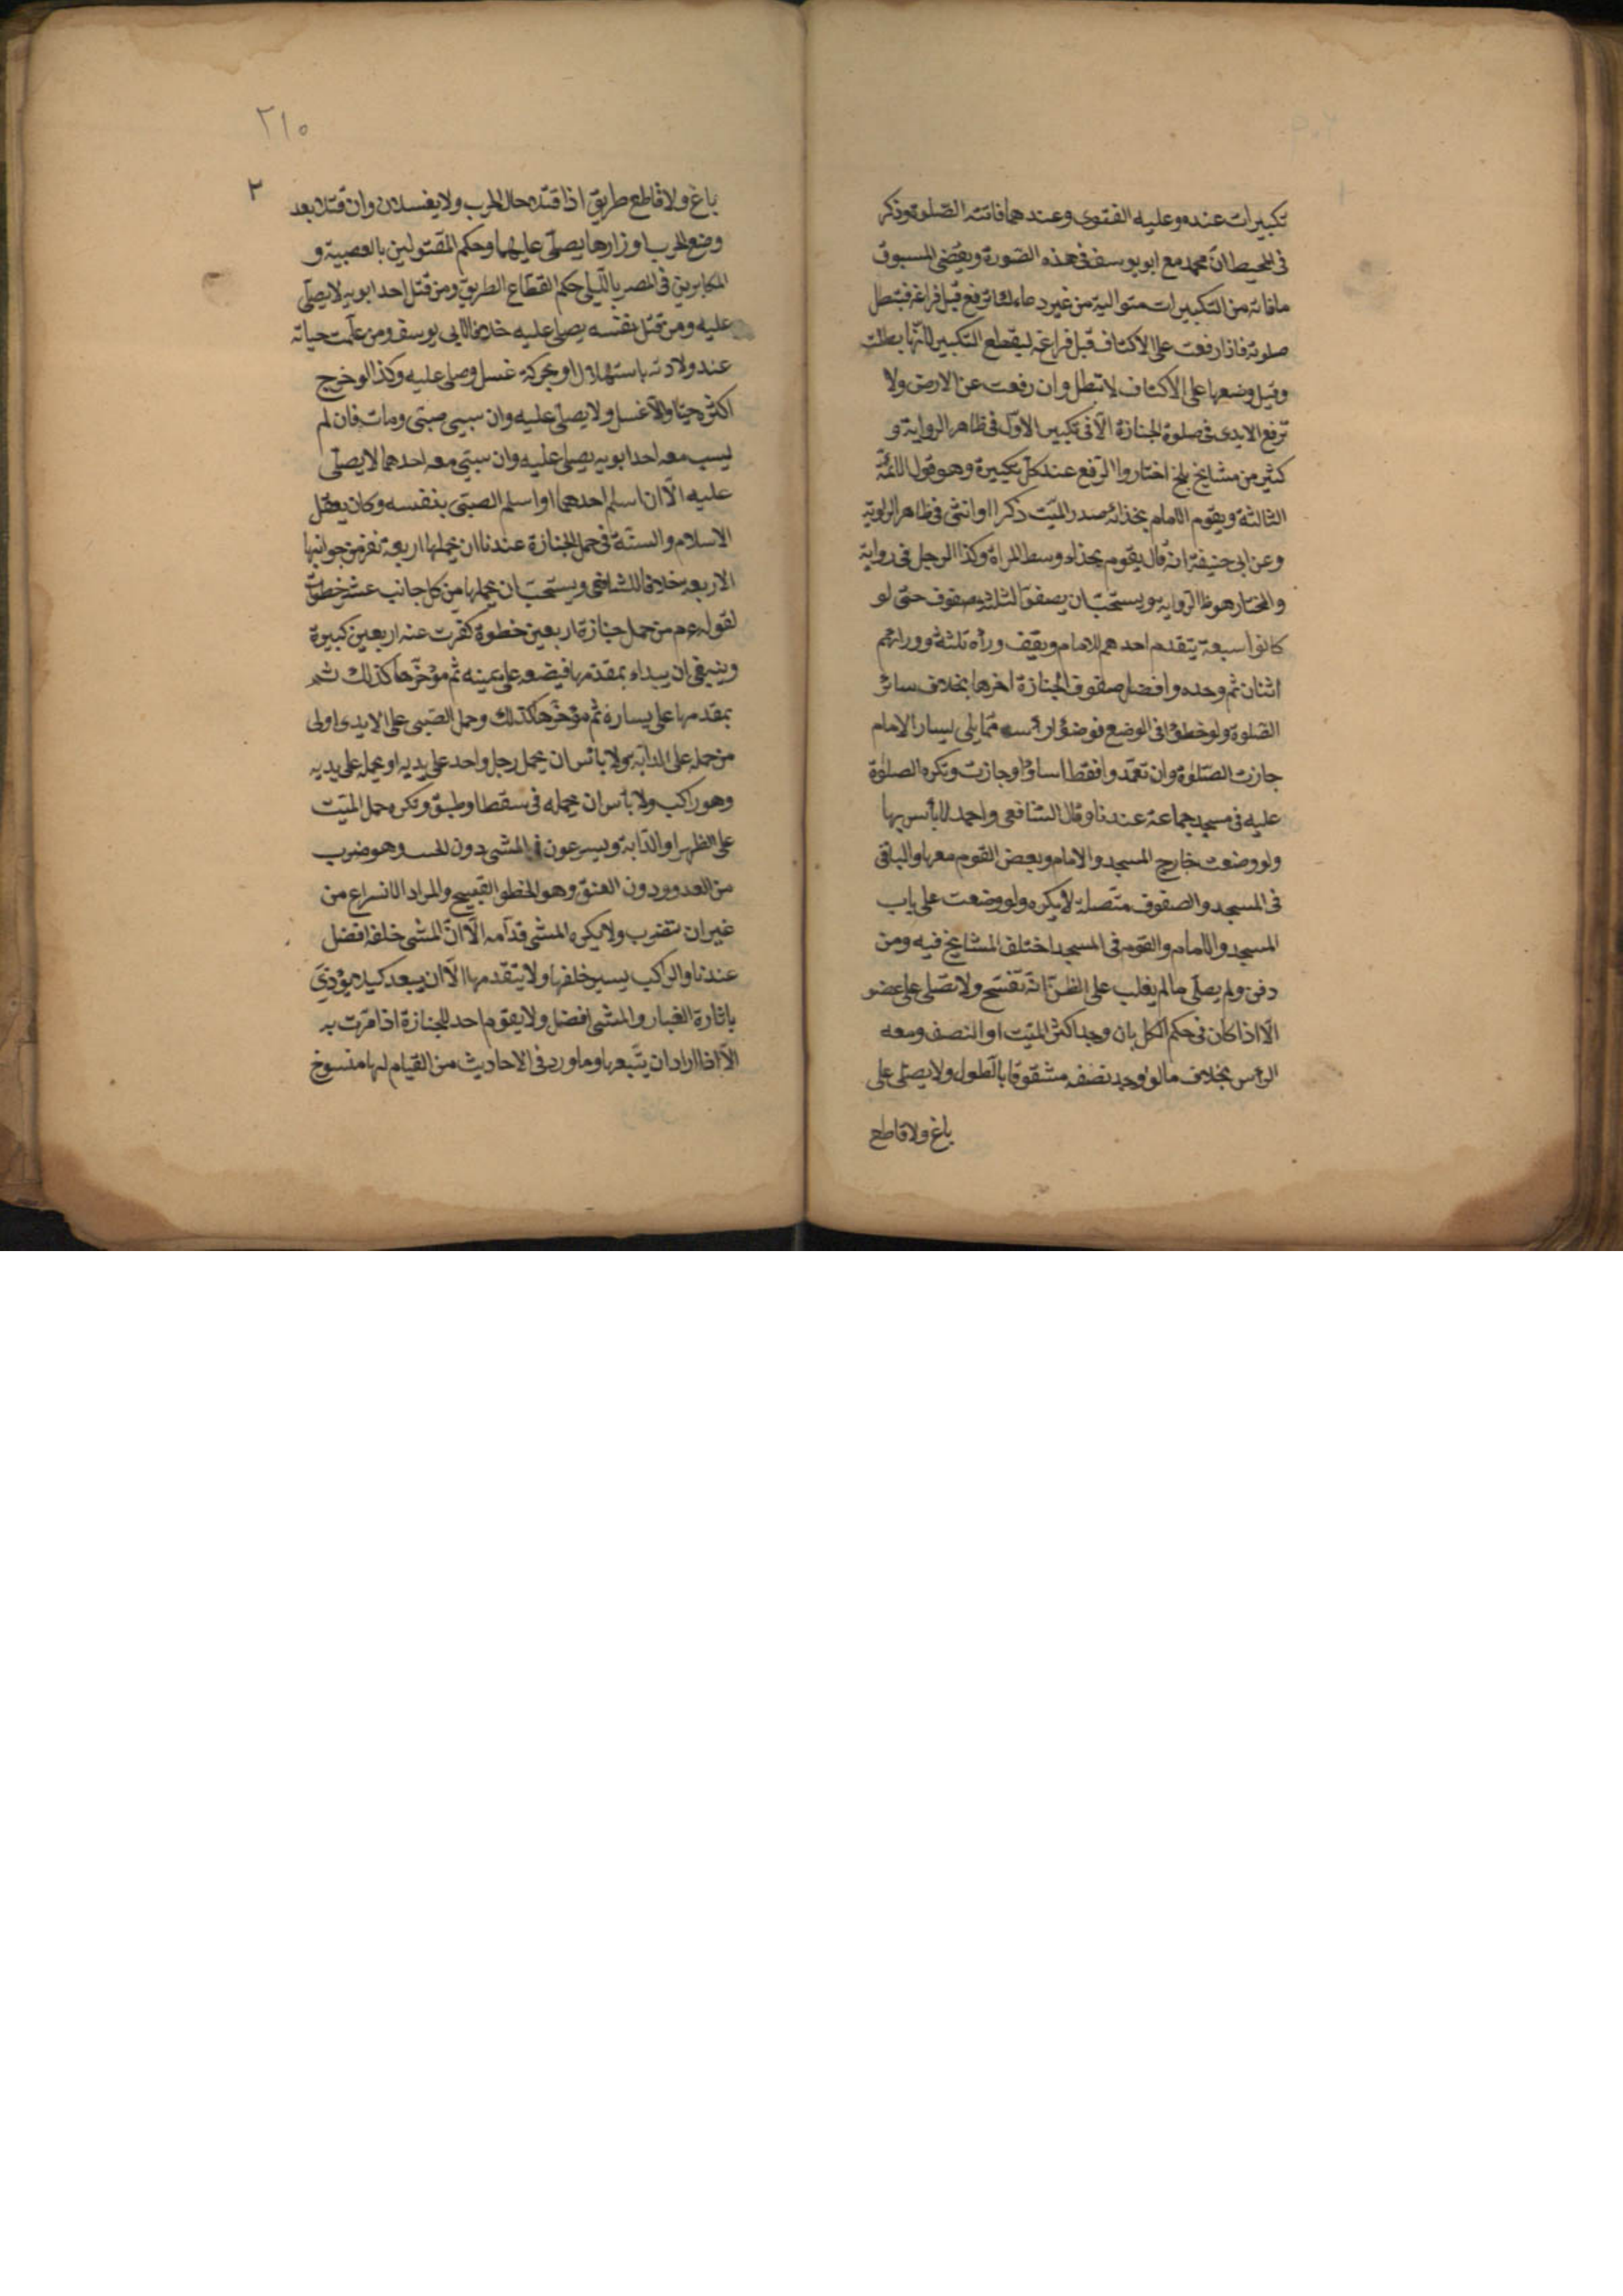 تكبيرات عنده وعليه الفتوى وعندهما فاتته الصّلوة وذكر
فى المحيط انّ محمد مع ابو يوسف فى هذه الصّورة ويقضى المسبوق
ما فاته من التكبيرات متوالية من غير دعاء لئلا ترفع قبل فراغه فتبطل
صلوته فاذا رفعت على الاكتاف قبل فراغه ليقطع التكبير لانّها بطلت
وقيل وضعها على الاكتاف لا تبطل وان رفعت عن الارض ولا
ترفع الايدى فى صلوة الجنازة الّا فى تكبير الاوّل فى ظاهر الرواية و
كثير من مشايخ بلخ اختاروا الرّفع عند كلّ تكبيرة وهو قول الائمّة
الثالثة ويقوم الامام بحذاء صدر الميّت ذكرا او انثى فى ظاهر الرواية
وعن ابى حنيفة انّه قال يقوم بحذاء وسط المرأة وكذا الرجل فى رواية
والمختار هو ظ الرواية ويستحبّ ان يصفوا ثلثة صفوف حتّى لو
كانوا سبعة يتقدم احدهم للامام ويقف وراه ثلثة وورائهم
اثنان ثم وحده وافضل صفوف الجنازة اخرها بخلاف سائر
الصّلوة ولو خطؤا فى الوضع فوضعوا رأسه ممّا يلى يسار الامام
جازت الصّلوة وان تعمّدوا فقط اساؤا وجازت وتكره الصلوة
عليه فى مسجد جماعة عندنا وقال الشافعى واحمد لا بأس بها
ولو وضعت خارج المسجد والامام وبعض القوم معها والباقى
فى المسجد والصفوف متّصلة لا يكره ولو وضعت على باب
المسجد والامام والقوم فى المسجد اختلف المشايخ فيه ومن
دفن ولم يصلّى ما لم يغلب على الظنّ انّه تفسّخ ولا تصّلى على عضو
الّا اذا كان فى حكم الكل بان وجد اكثر الميّت او النصف ومعه
الرأس بخلاف ما لو وجد نصفه مشقوقا بالطول ولا يصلّى على
باغ ولا قاطع
٢١٠
٢
باغ ولا قاطع طريق اذا قتلا حال الحرب ولا يغسلان وان قتلا بعد
وضع الحرب اوزارها يصلّى عليهما وحكم المقتولين بالعصبية و
المكابرين فى المصر بالليلى حكم القطّاع الطريق ومن قتل احد ابويه لا يصلّى
عليه ومن قتل نفسه يصلى عليه خلافا لابى يوسف ومن علمت حياته
عند ولادته باستهلال او بحركة غسل وصلى عليه وكذا لو خرج
اكثره حيّا والّا غسل ولا يصلّى عليه وان سبى صبّى ومات فان لم
يسب معه احد ابويه يصلى عليه وان سبّى معه احدهما لا يصلّى
عليه الّا ان اسلم احدهما او اسلم الصبّى بنفسه وكان يعقل
الاسلام والسنّة فى حمل الجنازة عندنا ان يحملها اربعة نفر من جوانبها
الاربعه خلافا للشافعى ويستحبّ ان يحملها من كل جانب عشر خطوات
لقوله عم من حمل جنازة اربعين خطوة كفرت عنه اربعين كبيرة
وينبغى ان يبداء بمقدّمها فيضعه على يمينه ثم مؤخّرها كذلك ثم
بمقدمها على يساره ثم مؤخّرها كذلك وحمل الصّبى على الايدى اولى
من حمله على الدابّة ولا بائس ان يحمل رجل واحد على يديه او يحمله على يديه
وهو راكب ولا بأس ان يحمله فى سفط او طبق وتكره حمل الميّت
على الظهر او الدّابة ويسرعون فى المشى دون الخبب وهو ضرب
من العدو ودون العنق وهو الخطو الفسيح والمراد الاسراع من
غير ان تضرب ولا يكره المشى قدّامه الّا انّ المشى خلفه افضل
عندنا والراكب يسير خلفها ولا يتقدّمها الّا ان يبعد كيلا يؤذى
باثارة الغبار والمشى افضل ولا يقوم احد للجنازة اذا مرّت به
الّا اذا اراد ان يتّبعها وما ورد فى الاحاديث من القيام لها منسوخ